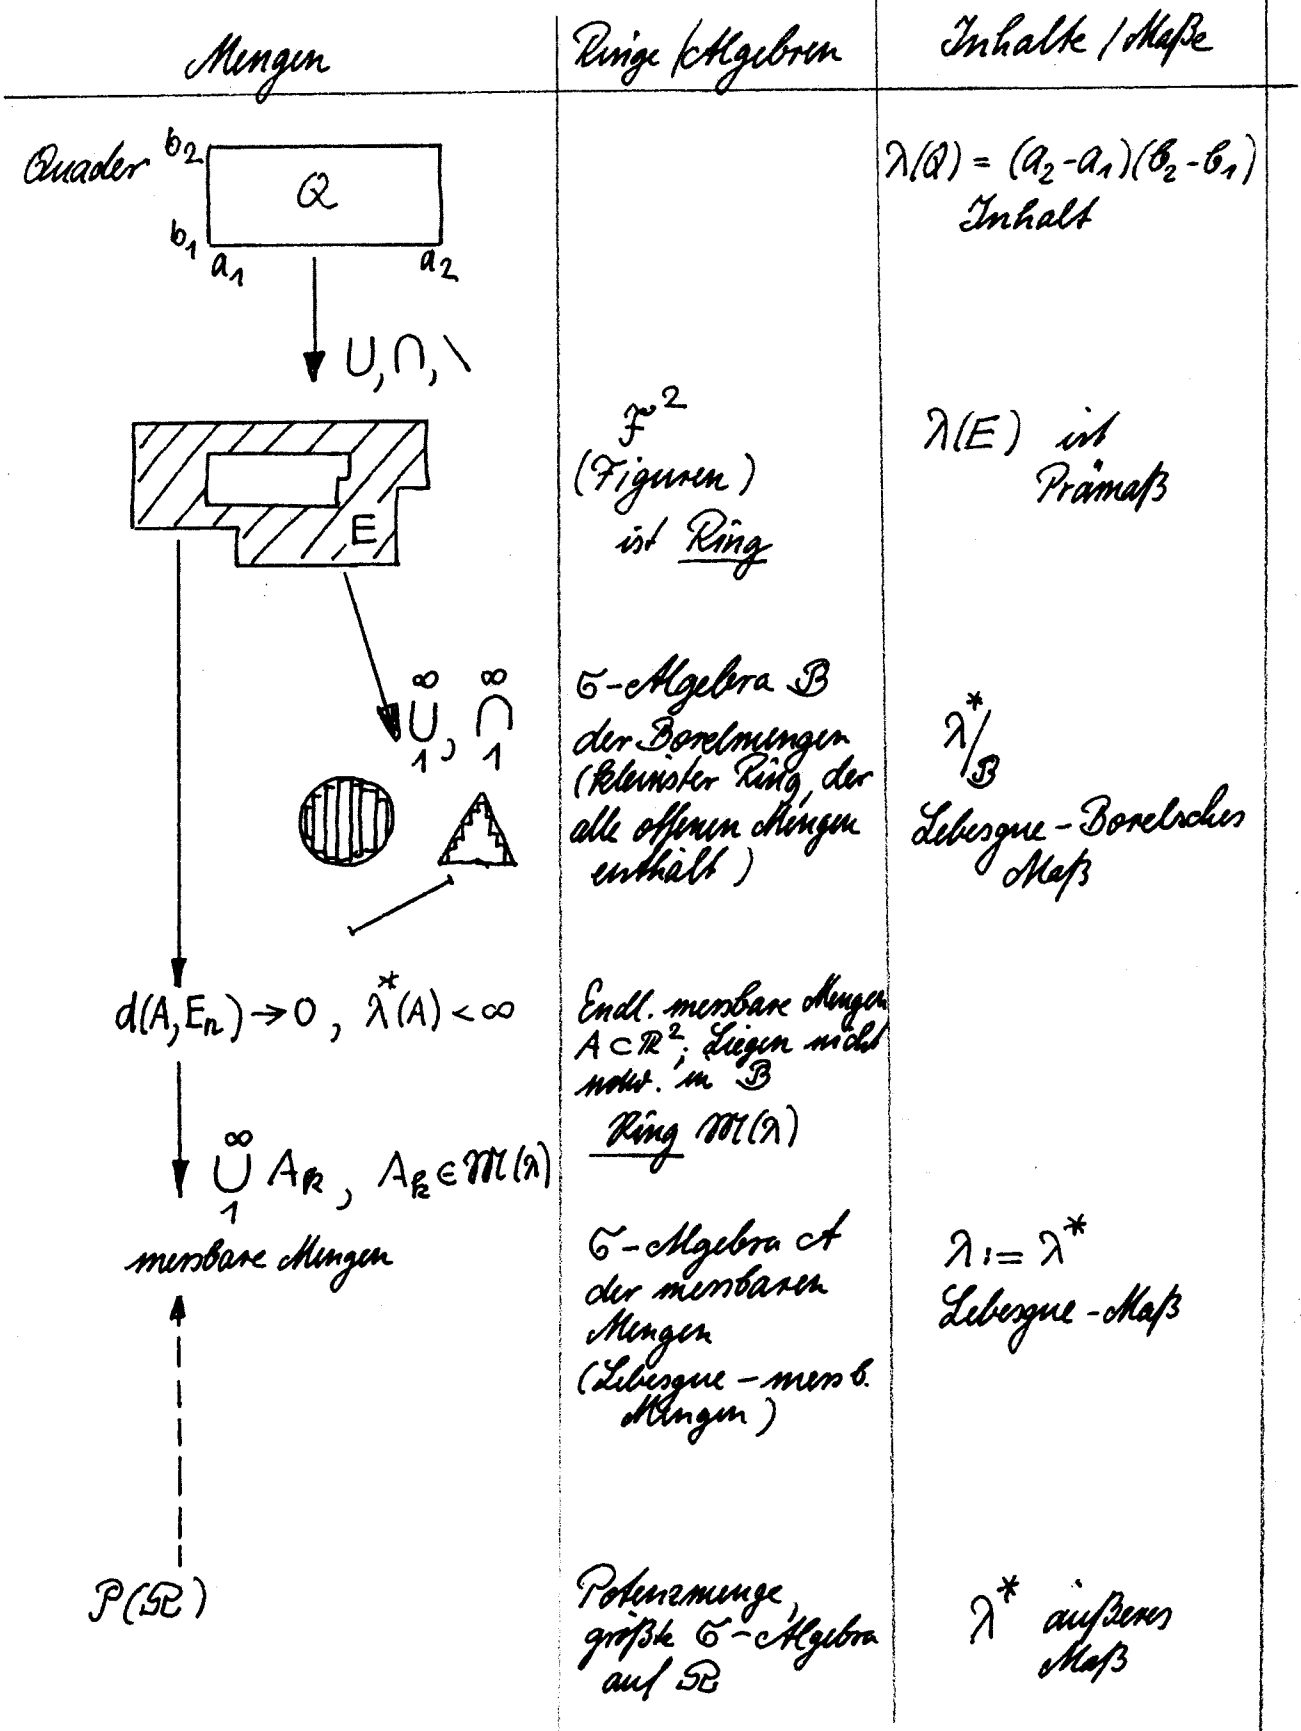 Mengen
Ringe/Algebren
Inhalte/Maße
Quader
b₂
Q
b₁
a₁
a₂
λ(Q) = (a₂-a₁)(b₂-b₁)
Inhalt
∪, ∩, \
E
F²
(Figuren)
ist Ring
λ(E) ist
Prämaß
∞ ∞
∪, ∩
1 1
σ-Algebra B
der Borelmengen
(kleinster Ring, der
alle offenen Mengen
enthält)
λ*/B
Lebesgue-Borelsches
Maß
d(A,Eₙ)→0, λ*(A)<∞
Endl. messbare Mengen
A⊂R²; Liegen nicht
notw. in B
Ring M(λ)
∞
∪ Aₖ, Aₖ∈M(λ)
1
messbare Mengen
σ-Algebra A
der messbaren
Mengen
(Lebesgue-messb.
Mengen)
λ := λ*
Lebesgue-Maß
P(Ω)
Potenzmenge,
größte σ-Algebra
auf Ω
λ* äußeres
Maß